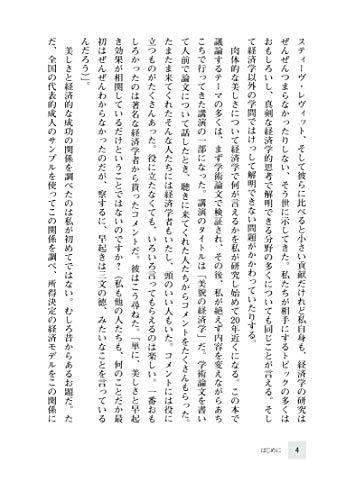 スティーヴ・レヴィット、そして彼らに比べると小さい貢献だけれど私自身も、経済学の研究は
ぜんぜんつまらなかったりしない、そう世に示してきた。私たちが相手にするトピックの多くは
おもしろいし、真剣な経済学的思考で解明できる分野の多くについても同じことが言える。そし
て経済学以外の学問ではけっして解明できない問題がかかわっていたりする。
肉体的な美しさについて経済学で何が言えるかを私が研究し始めて20年近くになる。この本で
議論するテーマの多くは、まず学術論文で検証され、その後、私が絶えず内容を変えながらあち
こちで行ってきた講演の一部になった。講演のタイトルは「美貌の経済学」だ。学術論文を書い
て人前で論文について話したとき、聴きに来てくれた人たちからコメントをたくさんもらった。
たまたま来てくれたそんな人たちには経済学者もいたし、頭のいい人もいた。コメントには役に
立つものがたくさんあった。役に立たなくても、いろいろ言ってもらえるのは楽しい。一番おも
しろかったのは著名な経済学者から貰ったコメントだ。彼はこう尋ねた。「単に、美しさと早起
き効果が相関しているだけということではないのですか？（私も他の人たちも、何のことだか最
初はぜんぜんわからなかったのだが、察するに、早起きは三文の徳、みたいなことを言っている
んだろう）」。
美しさと経済的な成功の関係を調べたのは私が初めてではない。むしろ昔からあるお題だ。た
だ、全国の代表的成人のサンプルを使ってこの関係を調べ、所得決定の経済モデルをこの関係に
はじめに
4